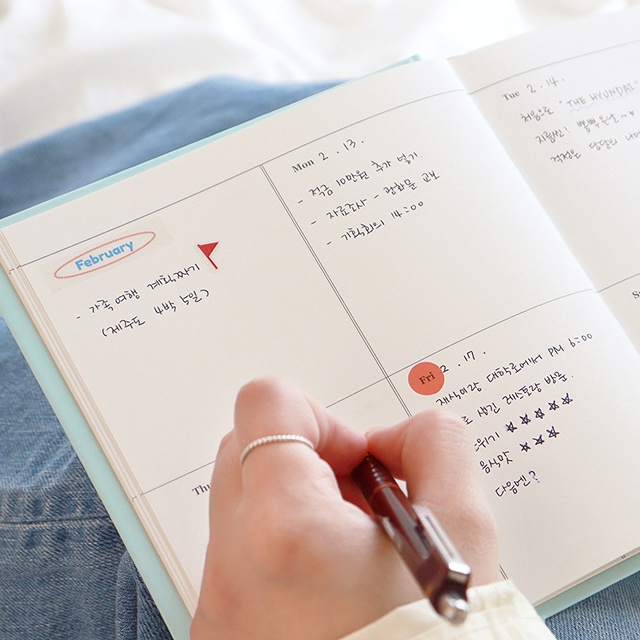 February
- 가족여행 계획짜기
(제주도 4박 5일)
Mon 2 . 13 .
- 적금 10만원 추가 넣기
- 자료조사 - 광화문 교보
- 기획회의 14:00
Tue 2 . 14 .
처음으로 "THE HYUNDAI
Fri 2 . 17 .
재식이랑 대학로에서 PM 6:00
로 생긴 레스토랑 방문.
위기 ★★★★★
음식맛 ★★★
다음엔?